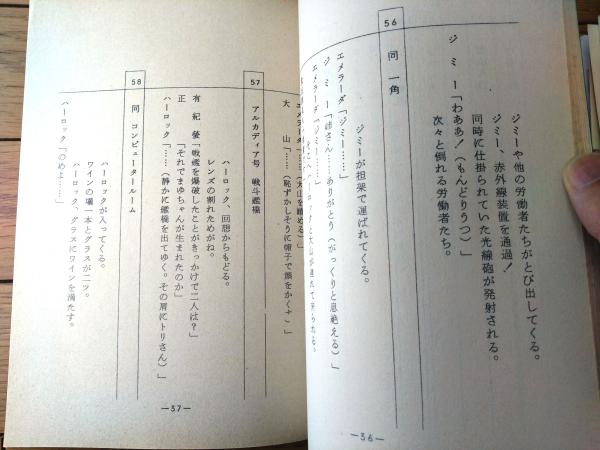 ジミーや他の労働者たちがとび出してくる。
ジミー、赤外線装置を通過！
同時に仕掛けられていた光線砲が発射される。
次々と倒れる労働者たち。
ジミー「わああ！（もんどりうつ）」
56
同 一角
ジミーが担架で運ばれてくる。
エメラーダ「ジミー……」
ジミー「姉さん……ありがとう（がっくりと息絶える）」
エメラーダ「ジミー！」
ロックと大山が連れて
―36―
エメラーダ「……（大山を睨める）」
大山「……（恥ずかしそうに帽子で顔をかくす）」
57
アルカディア号 戦斗艦橋
ハーロック、回想からもどる。
レンズの割れためがね。
有紀螢「戦艦を爆破したことがきっかけで二人は？」
正「それでまゆちゃんが生まれたのか」
ハーロック「……（静かに艦橋を出てゆく。その肩にトリさん）」
58
同 コンピュータールーム
ハーロックが入ってくる。
ワインの壜一本とグラスが二ッ。
ハーロック、グラスにワインを満たす。
ハーロック「のめよ……」
―37―